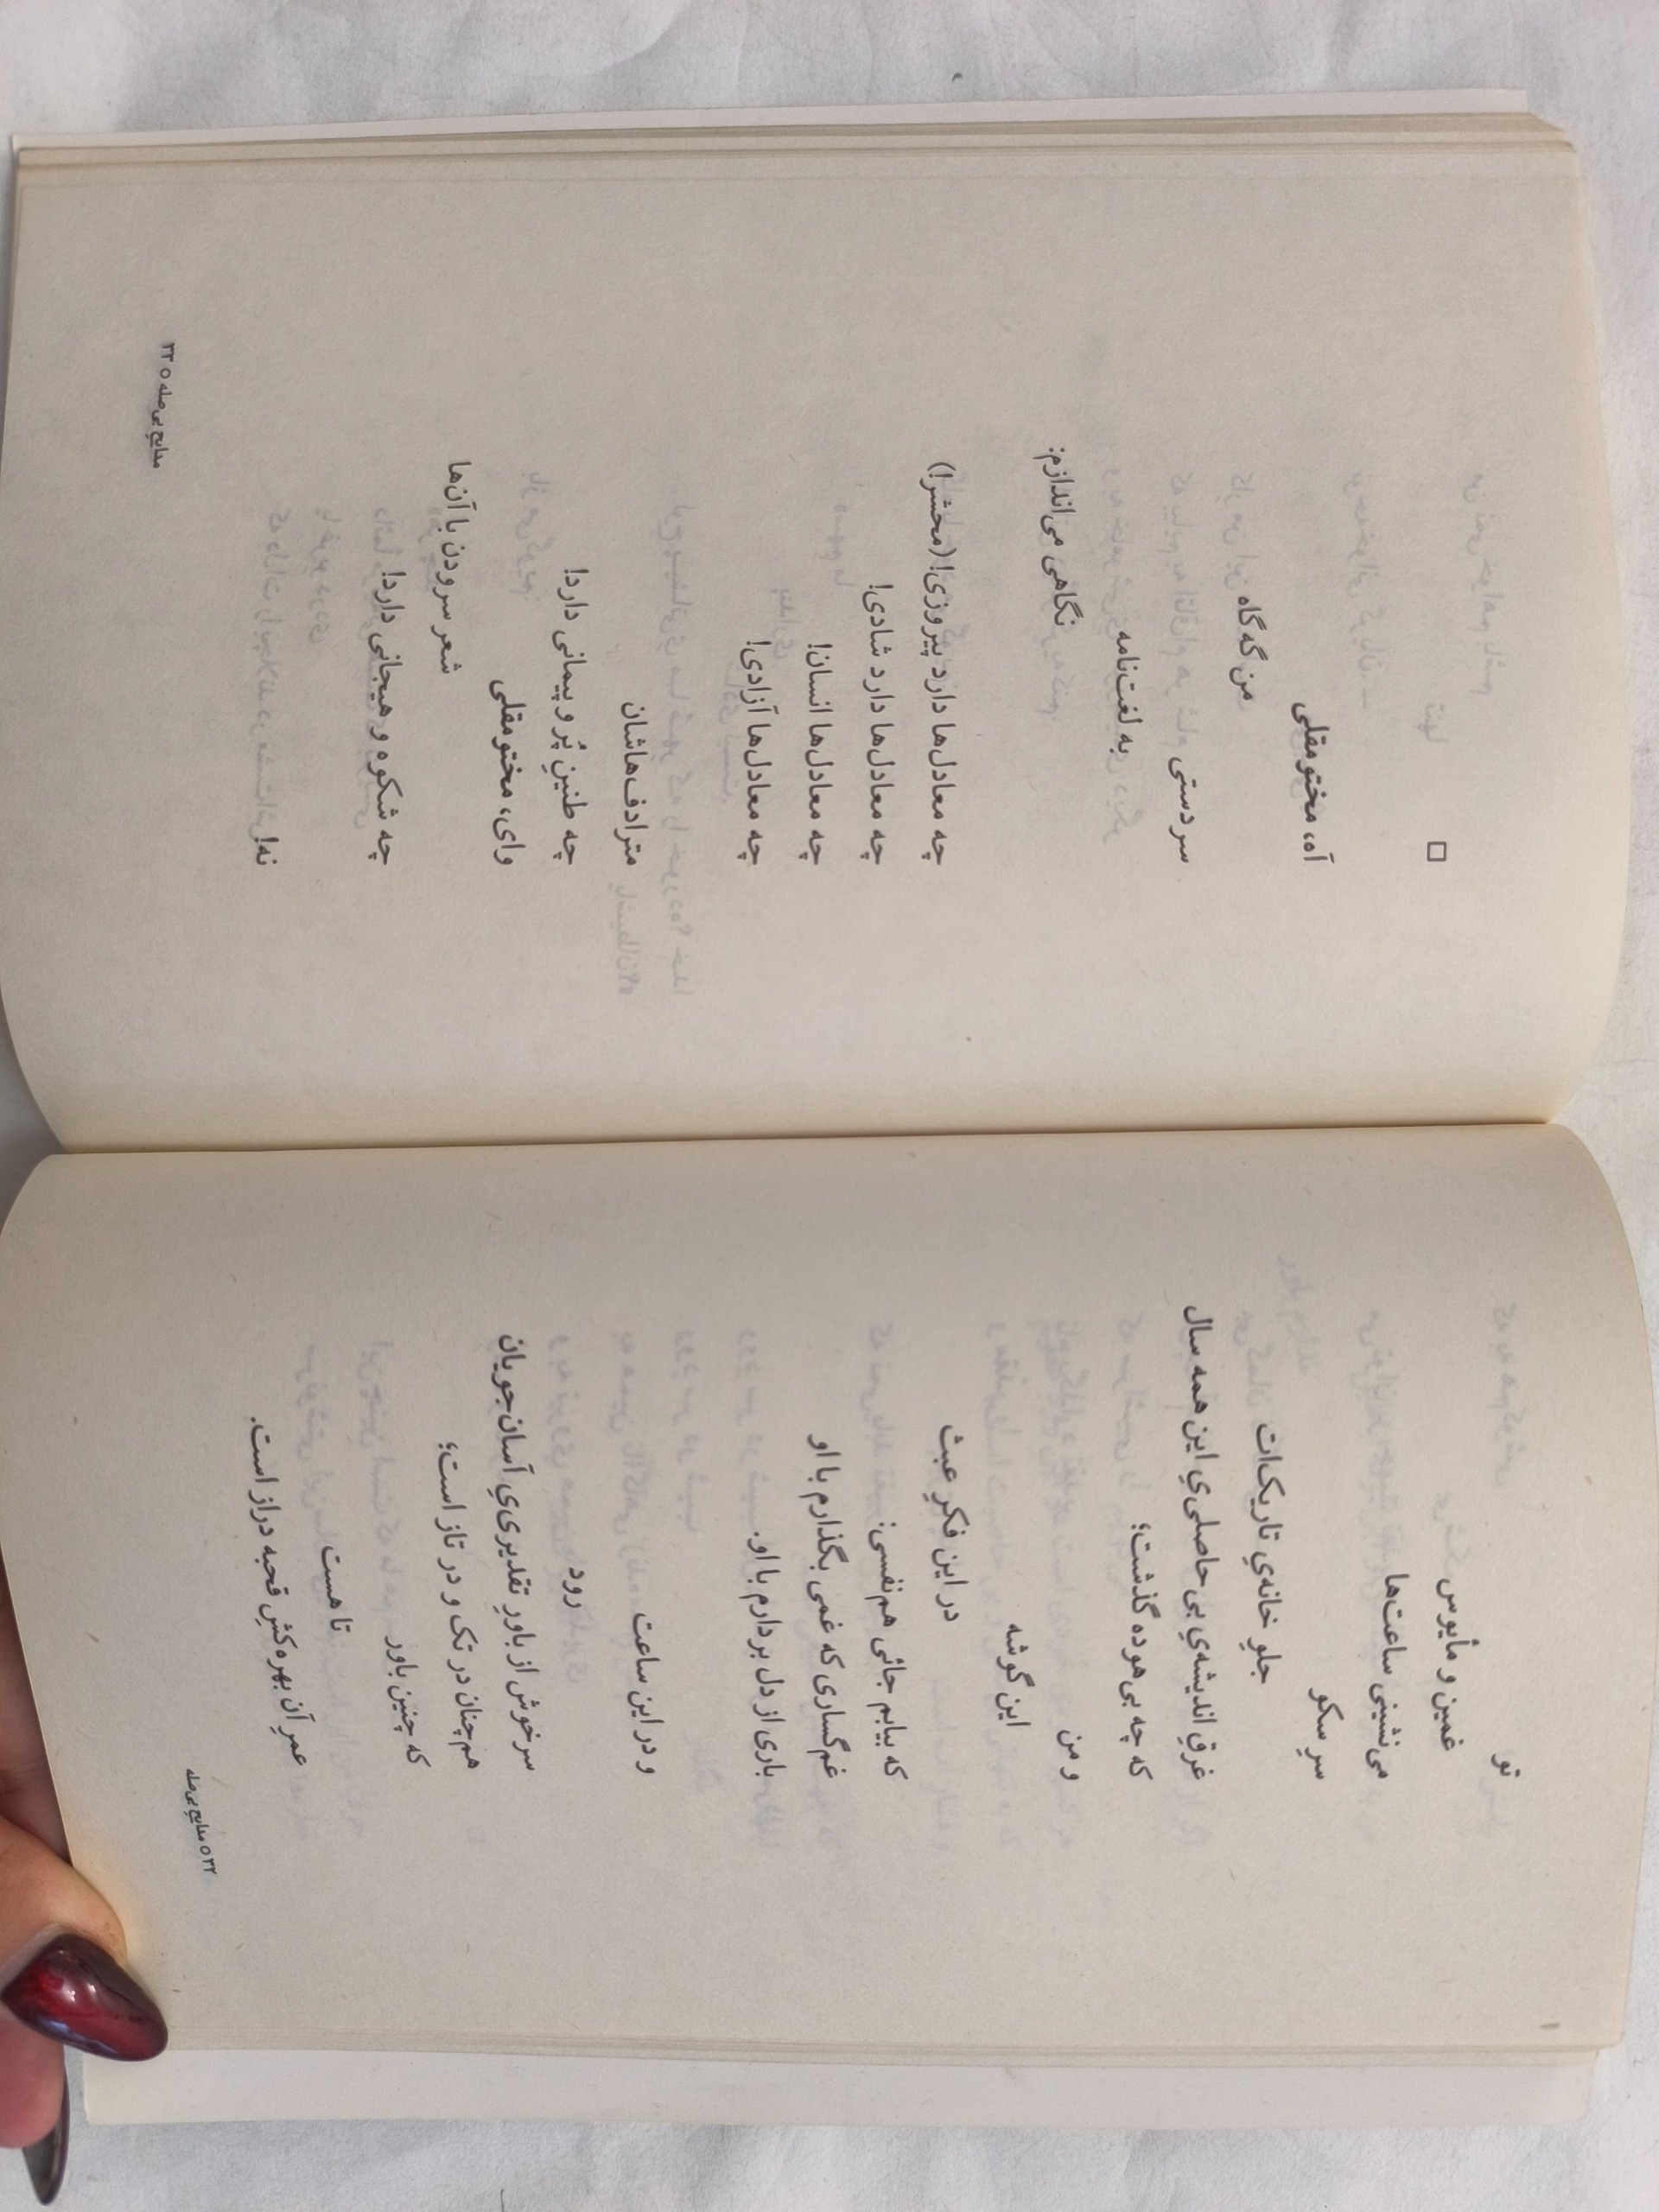 تو
غمین و مأیوس
می‌نشینی ساعت‌ها
سرِ سکو
جلوِ خانه‌یِ تاریک‌ات
غرقِ اندیشه‌یِ بی‌حاصلی‌یِ این همه سال
که چه بی‌هوده گذشت؛
و من
این گوشه
در این فکرِ عبث
که بیابم جائی هم‌نفسی:
غم‌گساری که غمی بگذارم با او
باری از دل بردارم با او.
و در این ساعت
رود
سرخوش از باورِ تقدیری‌یِ آسان‌جویان
هم‌چنان در تک و در تاز است؛
که چنین باور
تا هست
عمرِ آن بهره‌کشِ قحبه دراز است.
۳۲ ○ مدایح بی‌صله
□
آه، مختومقلی
من گه گاه
سردستی
به لغت‌نامه
نگاهی می‌اندازم:
چه معادل‌ها دارد پیروزی! (محشر!)
چه معادل‌ها دارد شادی!
چه معادل‌ها انسان!
چه معادل‌ها آزادی!
مترادف‌هاشان
چه طنینِ پُر و پیمانی دارد!
وای، مختومقلی
شعر سرودن با آن‌ها
چه شکوه و هیجانی دارد!
نه!
مدایح بی‌صله ○ ۳۳